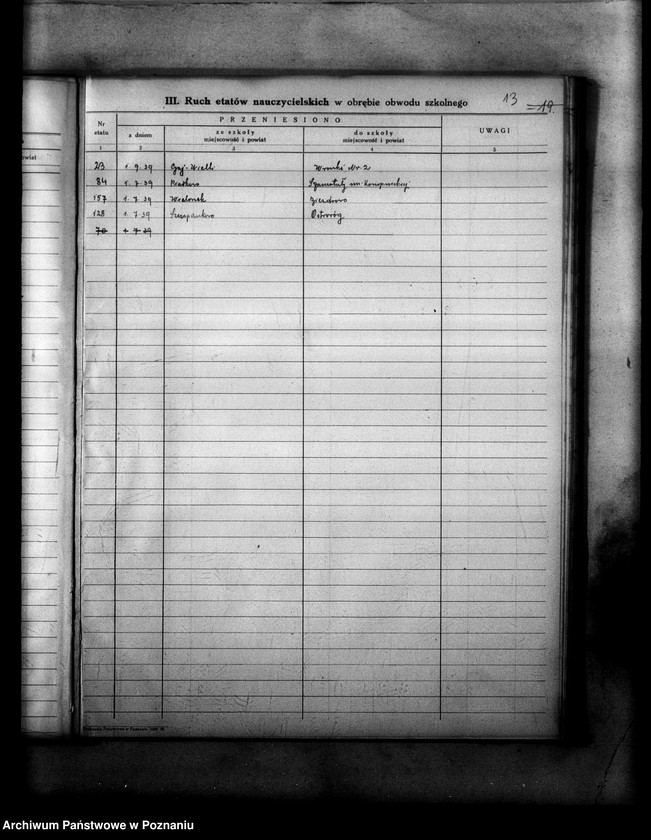 III. Ruch etatów nauczycielskich w obrębie obwodu szkolnego
13
19.
Nr etatu
PRZENIESIONO
UWAGI
z dniem
ze szkoły miejscowość i powiat
do szkoły miejscowość i powiat
1 2 3 4 5
wiat
213 1. 9. 39 Gaj-Wielki Wronki Nr. 2
84 1. 7. 39 Szamotuły im. Konopnickiej
157 1. 7. 39
128 1. 7. 39 Szczepankowo Ostroróg
70 1 7 39
Archiwum Państwowe w Poznaniu